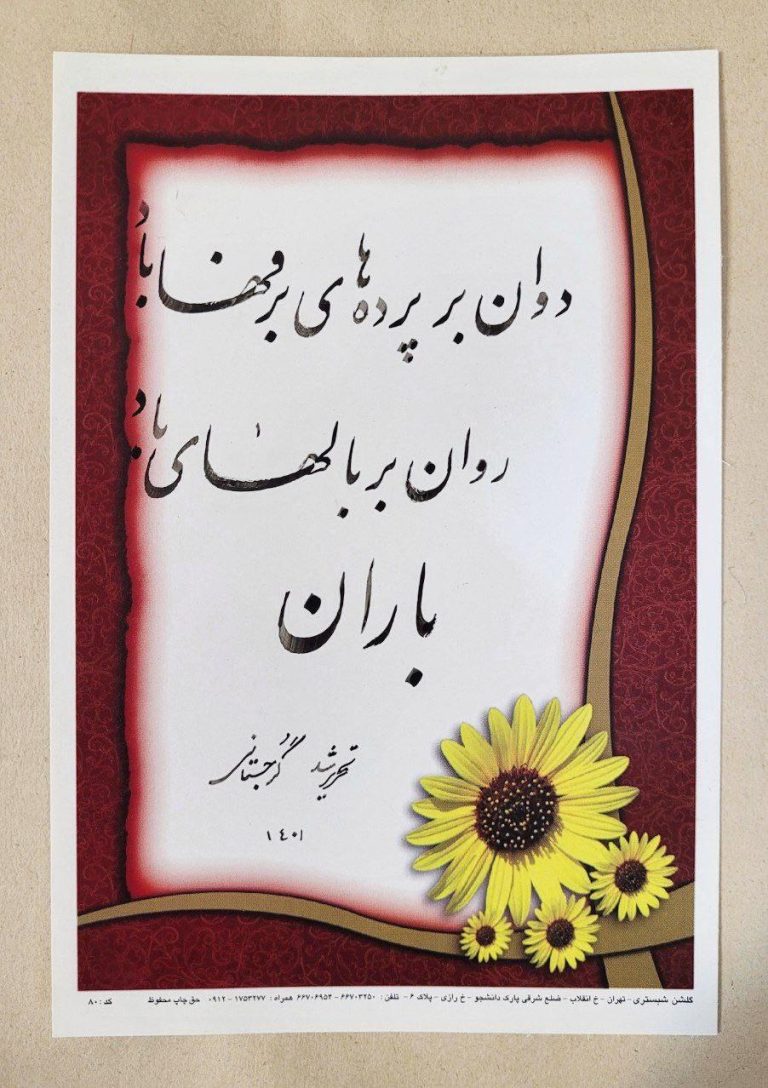 دوان بر پرده‌های برفها باد
روان بر بالهای باد
باران
تحریر شد گرجستانی
۱٤۰۱
گلشن شبستری - تهران - خ انقلاب - ضلع شرقی پارک دانشجو - خ رازی - پلاک ۶ - تلفن : ۶۶۷۰۳۲۵۰ - ۶۶۷۰۶۹۵۳ همراه : ۱۷۵۳۲۷۷ - ۰۹۱۲ حق چاپ محفوظ کد : ۸۰